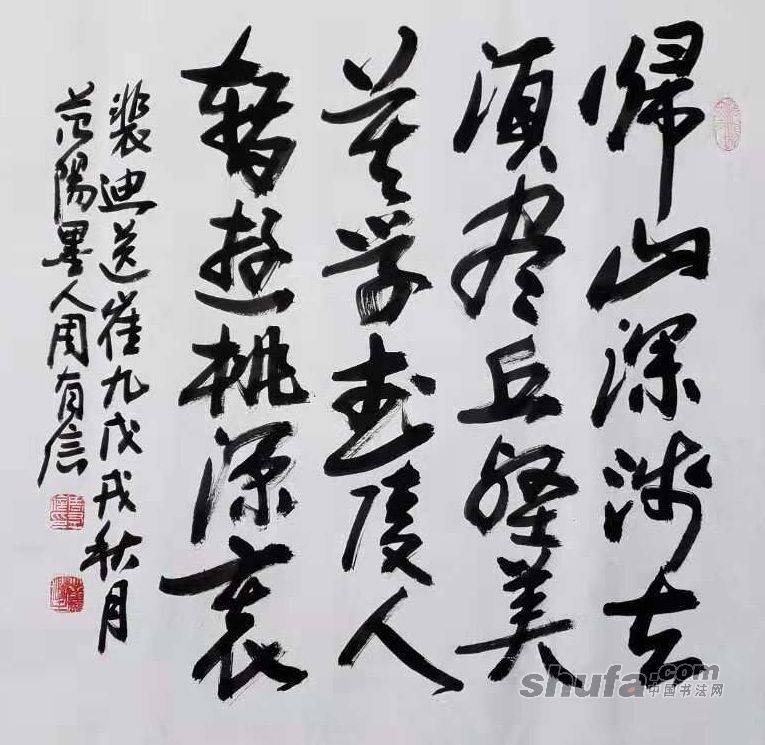 歸山深浅去
須尽丘壑美
莫学武陵人
暫遊桃源裏
裴迪送崔九戊戌秋月
范陽墨人周有信
shufa.com
中国书法网